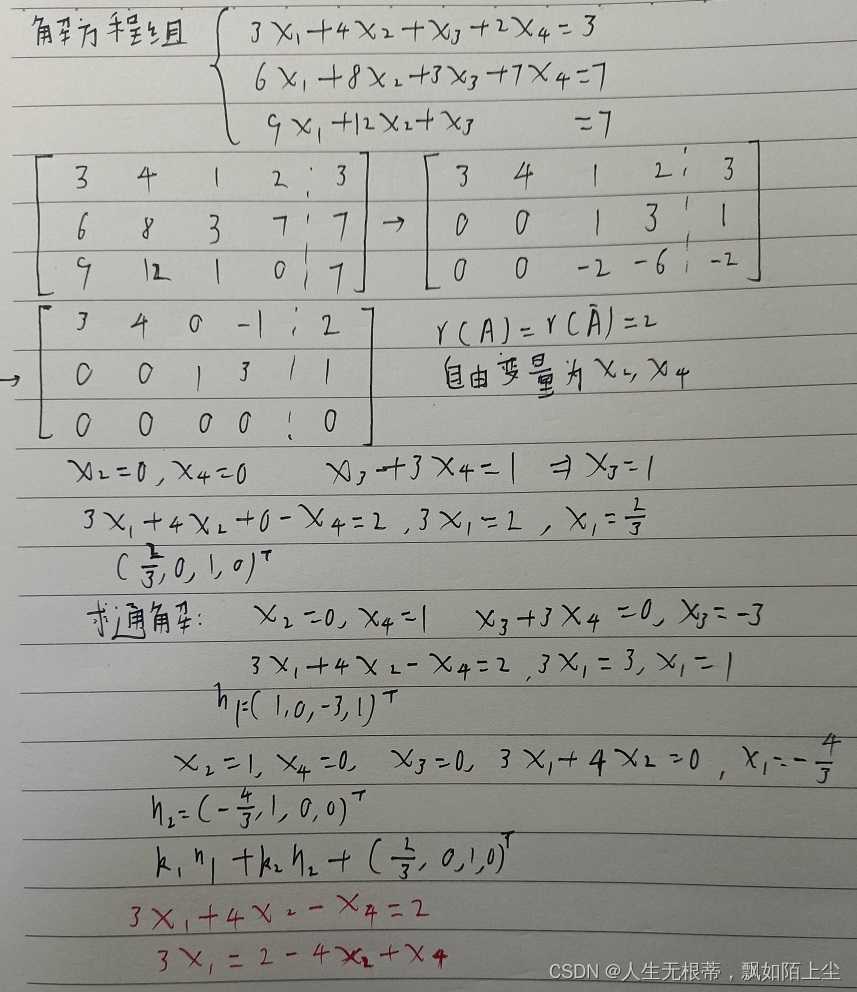 解方程组 { 3x₁+4x₂+x₃+2x₄=3
6x₁+8x₂+3x₃+7x₄=7
9x₁+12x₂+x₃ =7
[ 3 4 1 2 ¦ 3 ] [ 3 4 1 2 ¦ 3 ]
[ 6 8 3 7 ¦ 7 ] → [ 0 0 1 3 ¦ 1 ]
[ 9 12 1 0 ¦ 7 ] [ 0 0 -2 -6 ¦ -2 ]
[ 3 4 0 -1 ¦ 2 ] r(A)=r(Ā)=2
→ [ 0 0 1 3 ¦ 1 ] 自由变量为 x₂, x₄
[ 0 0 0 0 ¦ 0 ]
x₂=0, x₄=0 x₃+3x₄=1 ⇒ x₃=1
3x₁+4x₂+0-x₄=2, 3x₁=2, x₁=2/3
(2/3, 0, 1, 0)ᵀ
求通解: x₂=0, x₄=1 x₃+3x₄=0, x₃=-3
3x₁+4x₂-x₄=2, 3x₁=3, x₁=1
η₁=(1, 0, -3, 1)ᵀ
x₂=1, x₄=0, x₃=0, 3x₁+4x₂=0, x₁=-4/3
η₂=(-4/3, 1, 0, 0)ᵀ
k₁η₁+k₂η₂+(2/3, 0, 1, 0)ᵀ
3x₁+4x₂-x₄=2
3x₁=2-4x₂+x₄
CSDN @人生无根蒂，飘如陌上尘